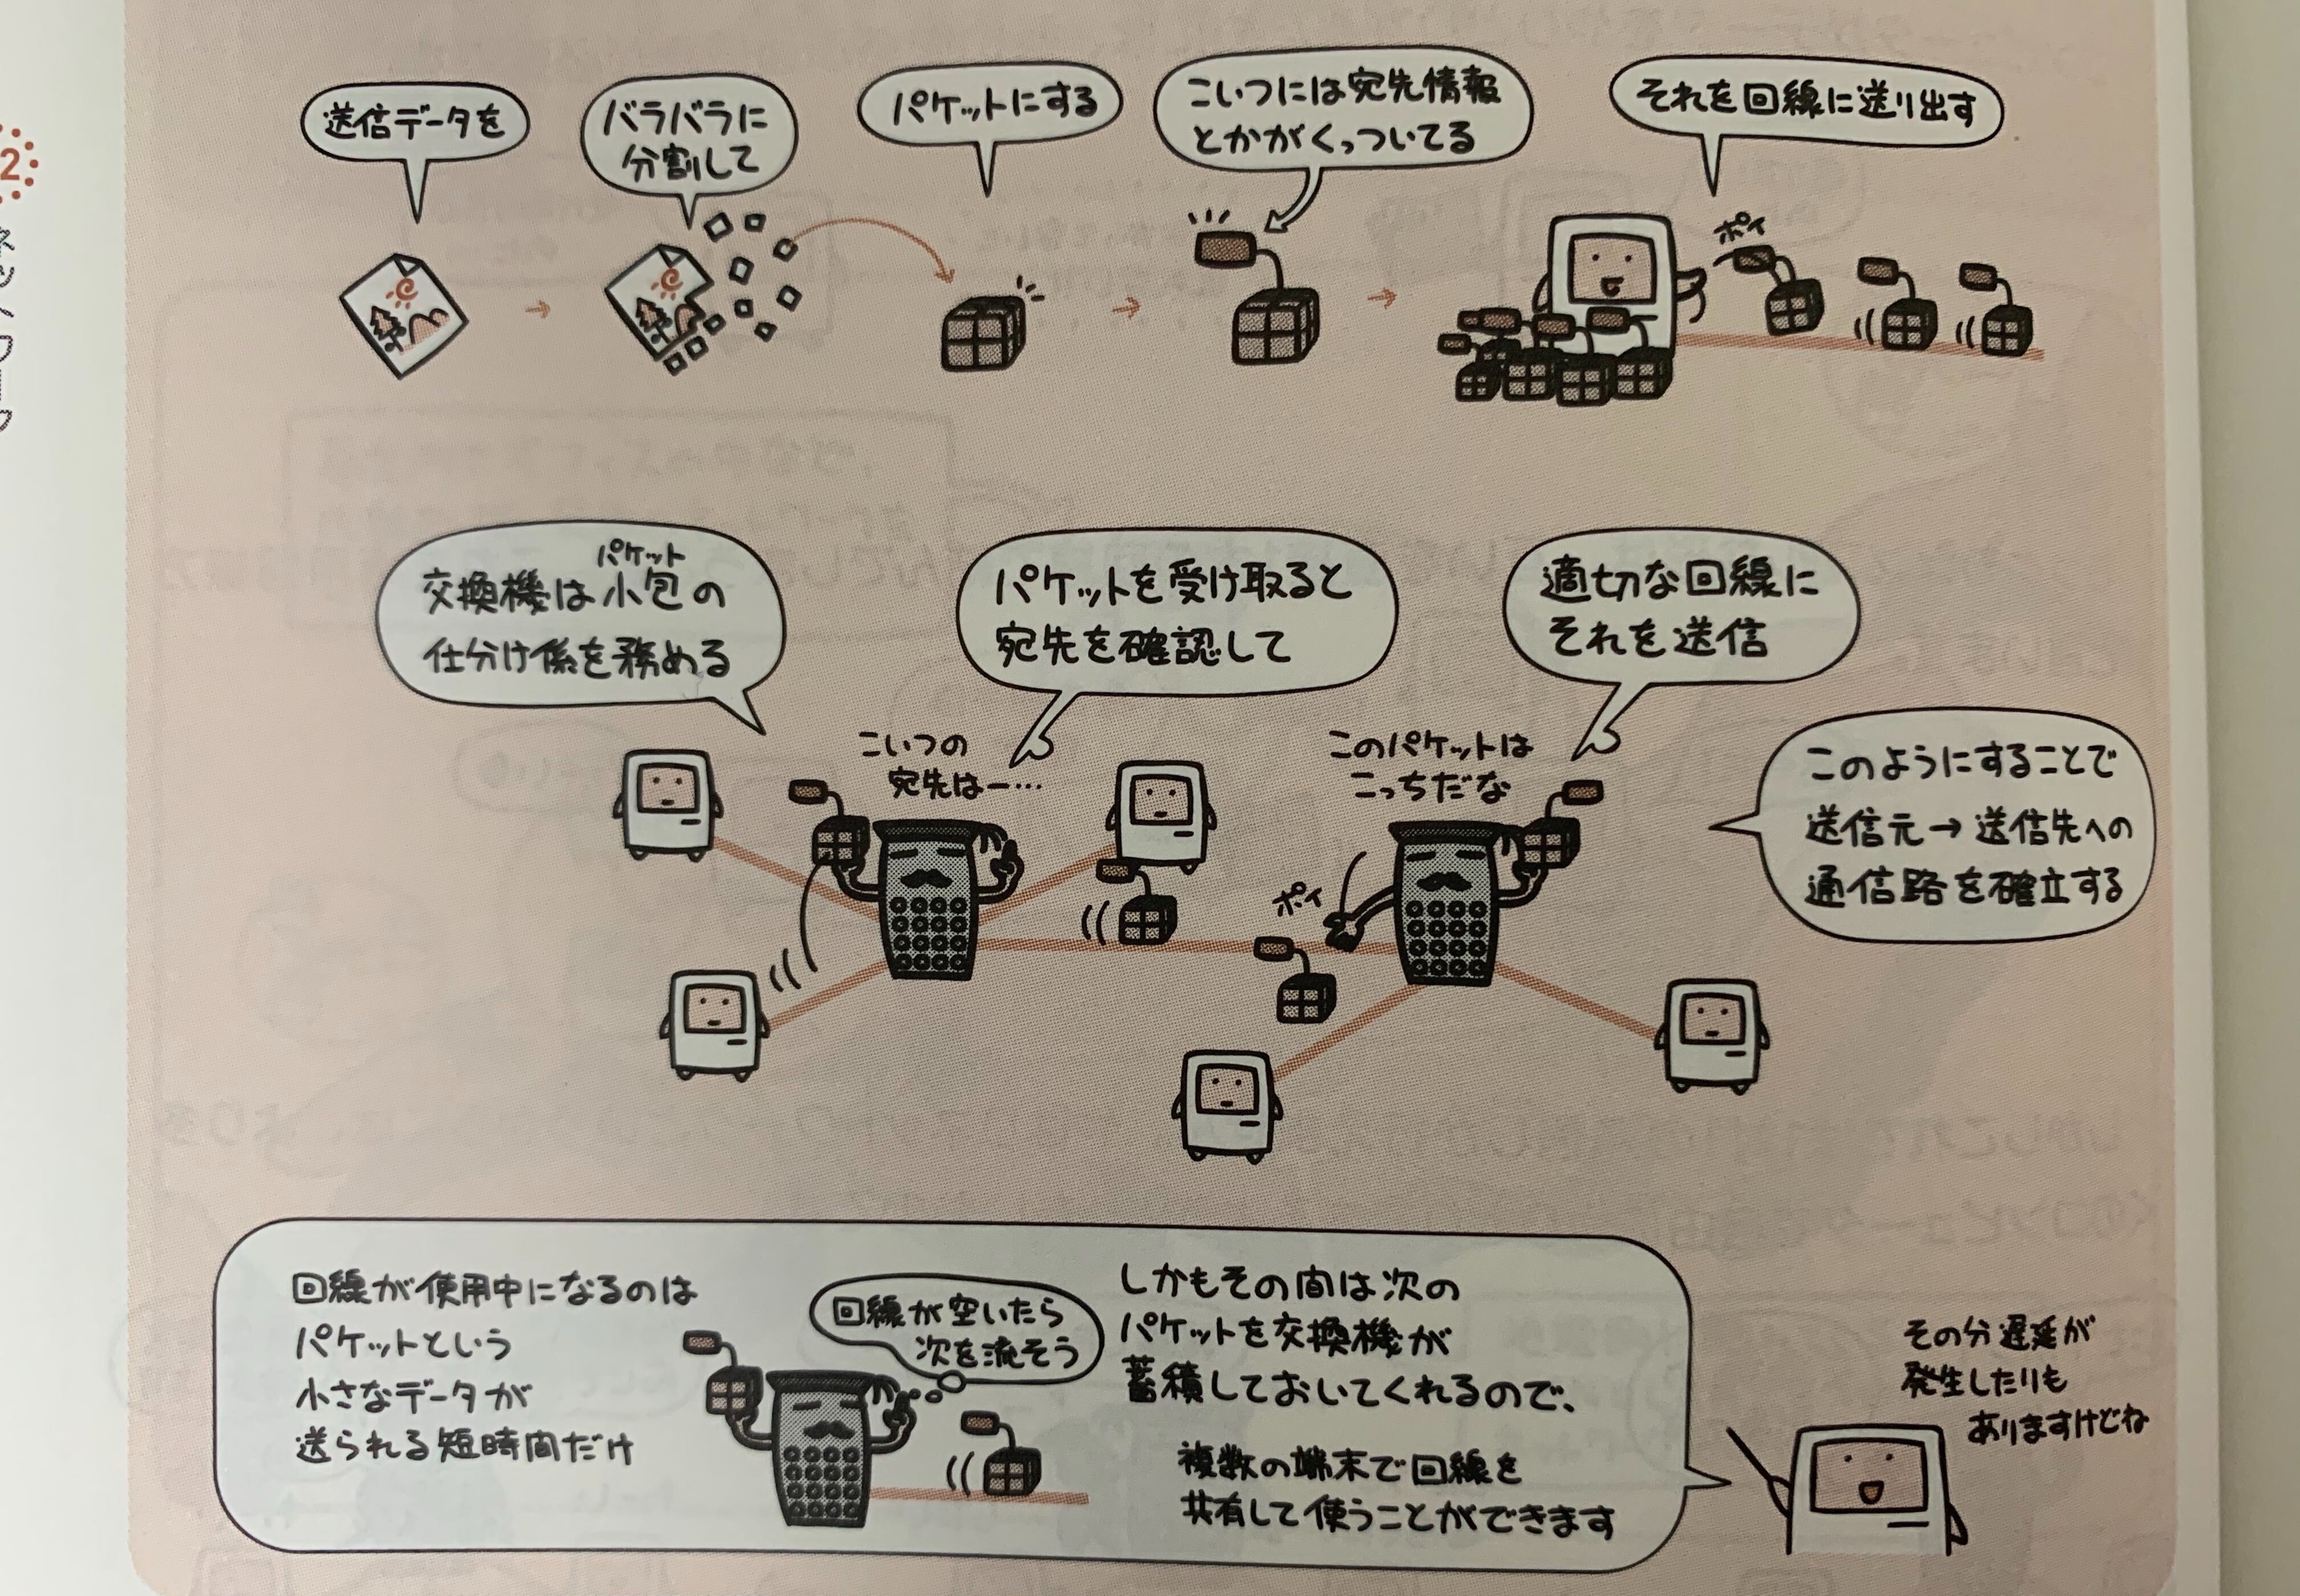 送信データを
バラバラに
分割して
パケットにする
こいつには宛先情報
とかがくっついてる
それを回線に送り出す
ポイ
2
パケット
交換機は小包の
仕分け係を務める
パケットを受け取ると
宛先を確認して
適切な回線に
それを送信
こいつの
宛先はー…
このパケットは
こっちだな
ポイ
このようにすることで
送信元→送信先への
通信路を確立する
回線が使用中になるのは
パケットという
小さなデータが
送られる短時間だけ
回線が空いたら
次を流そう
しかもその間は次の
パケットを交換機が
蓄積しておいてくれるので、
複数の端末で回線を
共有して使うことができます
その分遅延が
発生したりも
ありますけどね